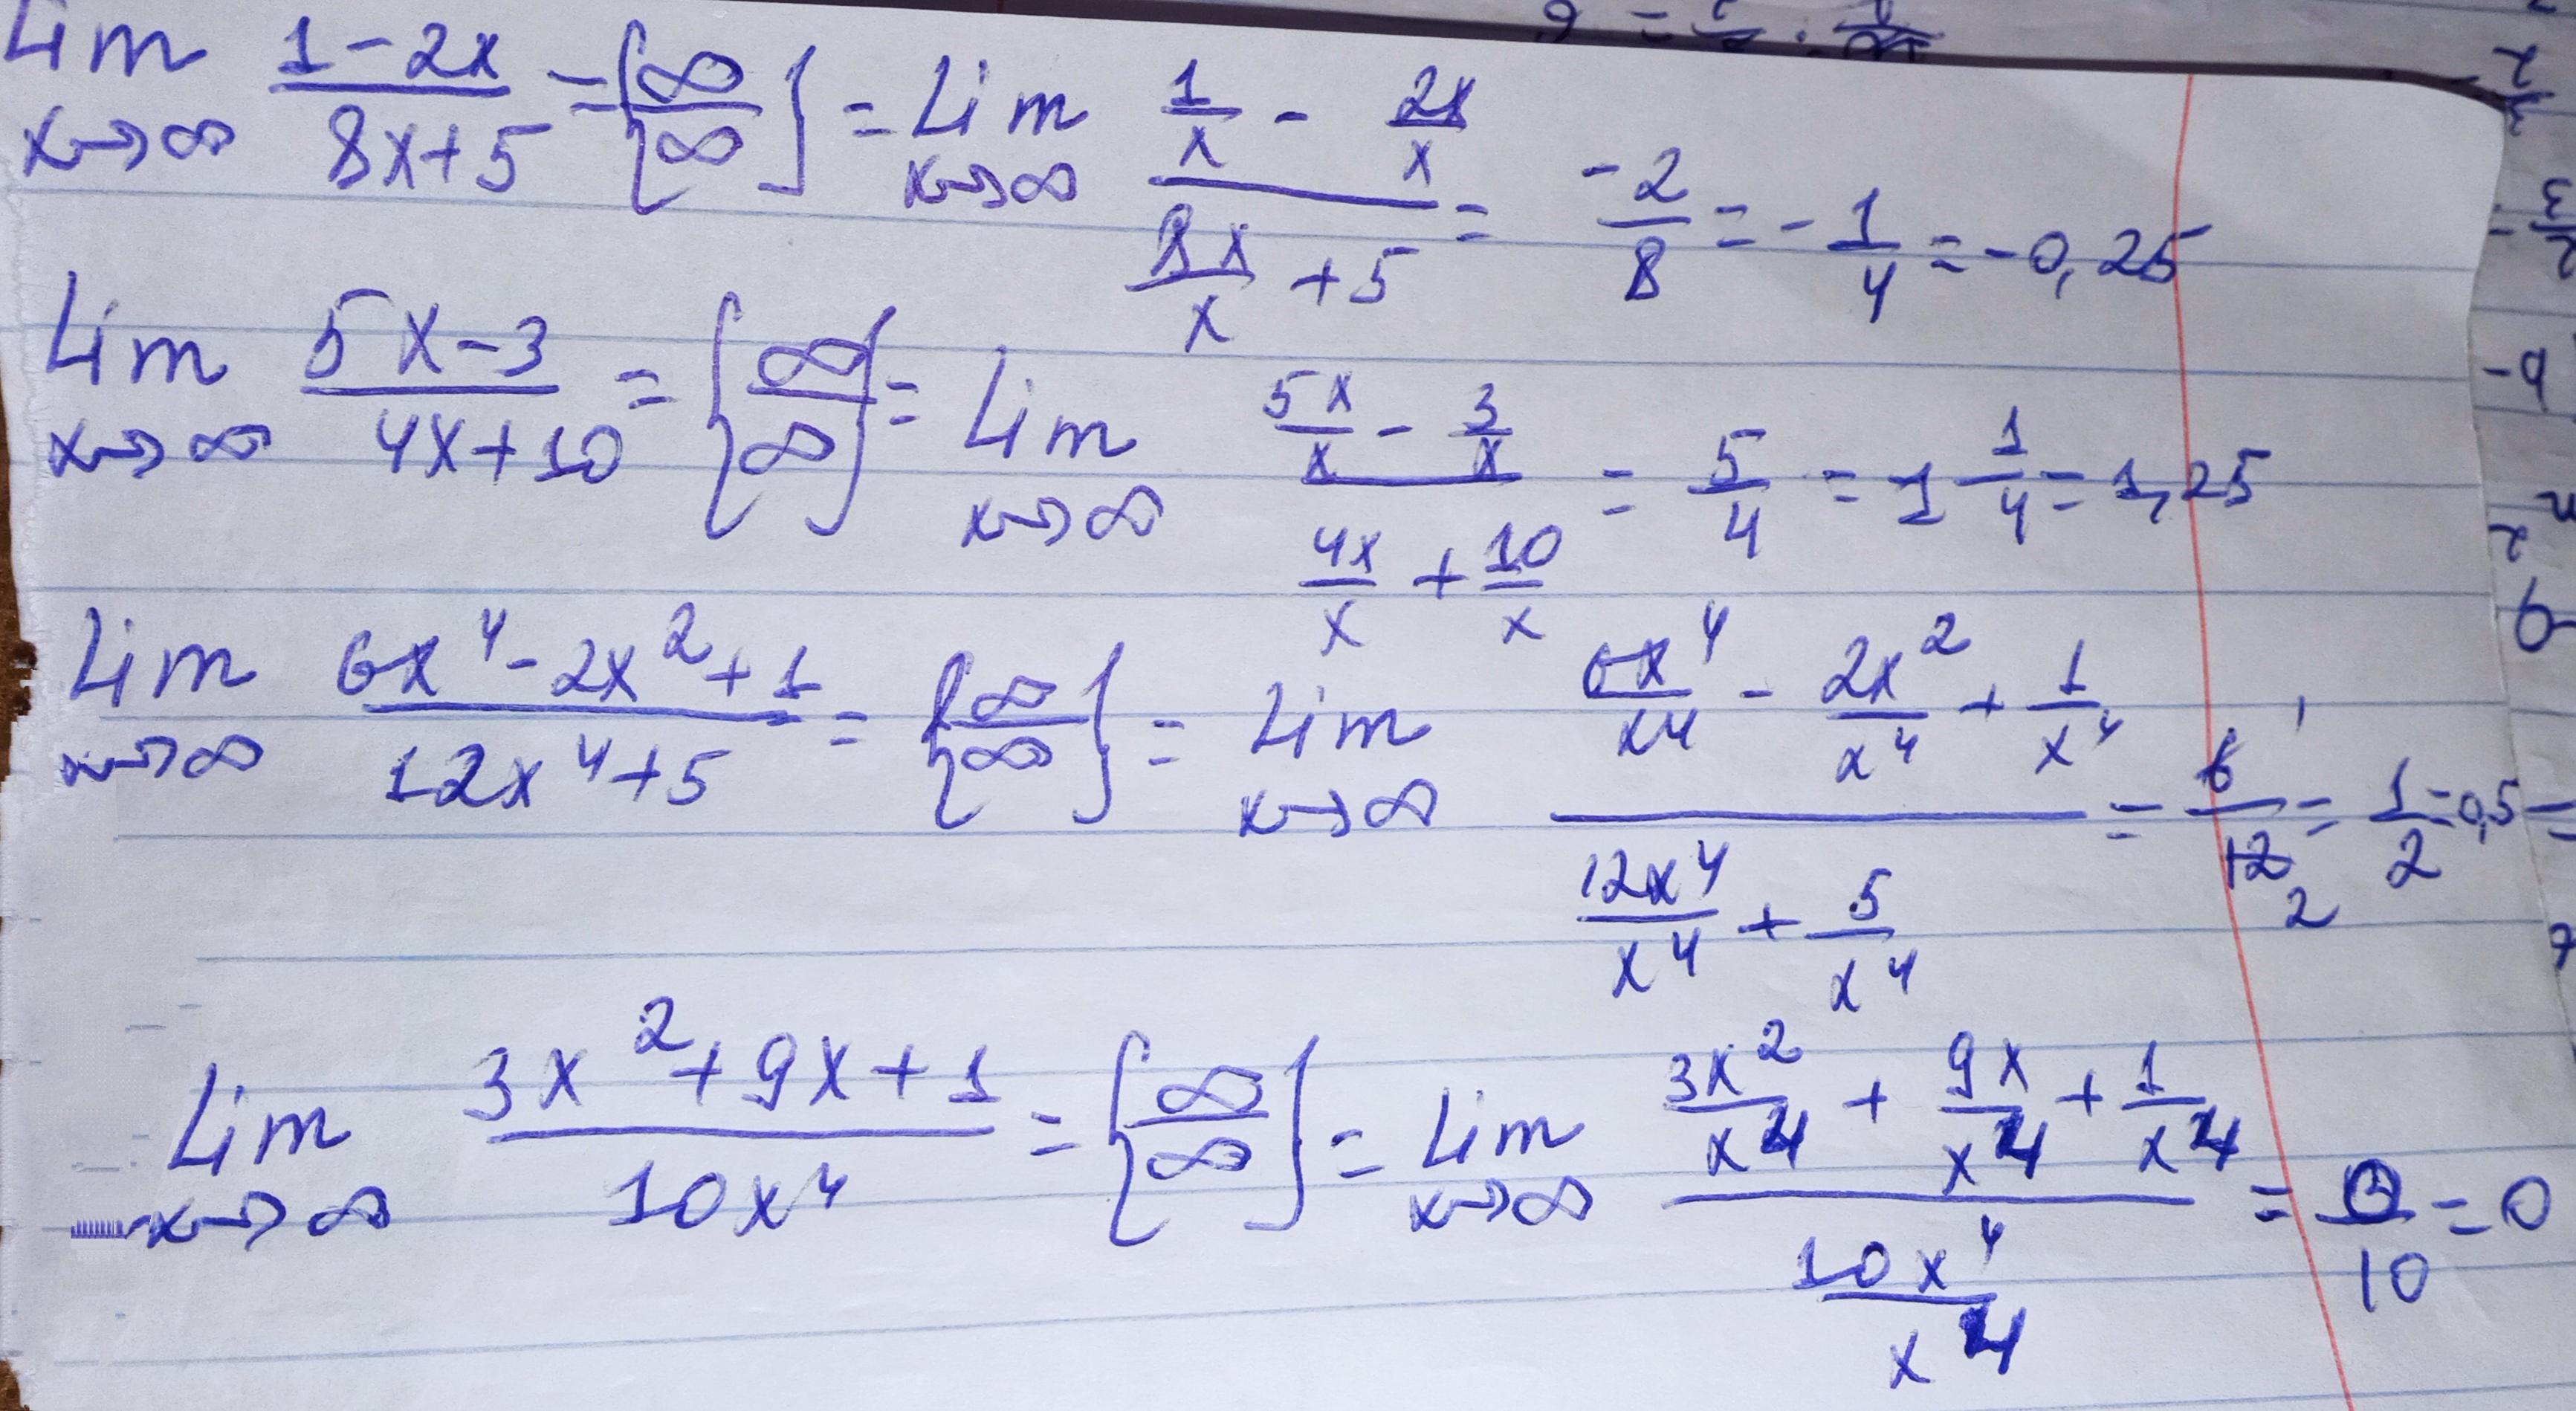 Lim x→∞ (1-2x)/(8x+5) = {∞/∞} = Lim x→∞ (1/x - 2x/x)/(8x/x + 5) = -2/8 = -1/4 = -0,25
Lim x→∞ (5x-3)/(4x+10) = {∞/∞} = Lim x→∞ (5x/x - 3/x)/(4x/x + 10/x) = 5/4 = 1 1/4 = 1,25
Lim x→∞ (6x⁴-2x²+1)/(12x⁴+5) = {∞/∞} = Lim x→∞ (6x⁴/x⁴ - 2x²/x⁴ + 1/x⁴)/(12x⁴/x⁴ + 5/x⁴) = 6 1/12 2 = 1/2 = 0,5 =
Lim x→∞ (3x²+9x+1)/(10x⁴) = {∞/∞} = Lim x→∞ (3x²/x⁴ + 9x/x⁴ + 1/x⁴)/(10x⁴/x⁴) = 0/10 = 0